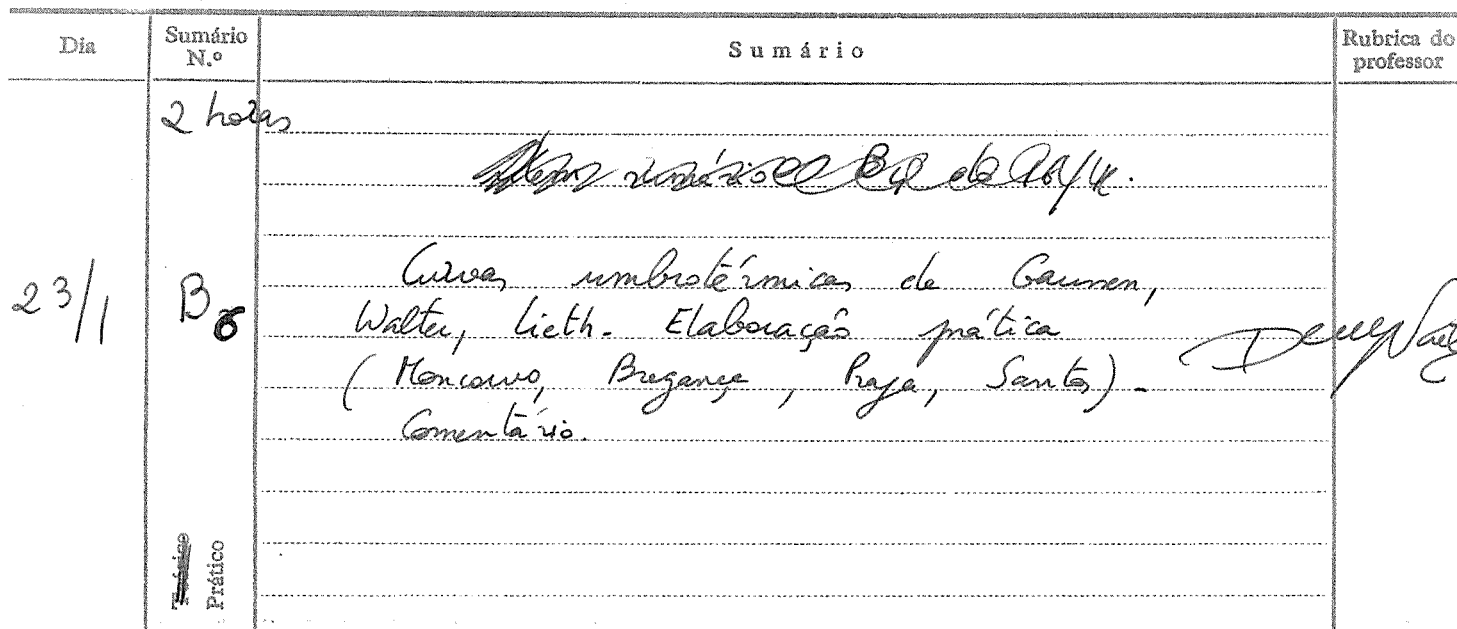 Dia
Sumário N.º
Sumário
Rubrica do professor
2 horas
23/1
B6
Curvas umbrotérmicas de Gaussen,
Walter, Lieth. Elaboração prática
(Moncorvo, Bragança, Praja, Santos).
Comentário.
Teórico
Prático